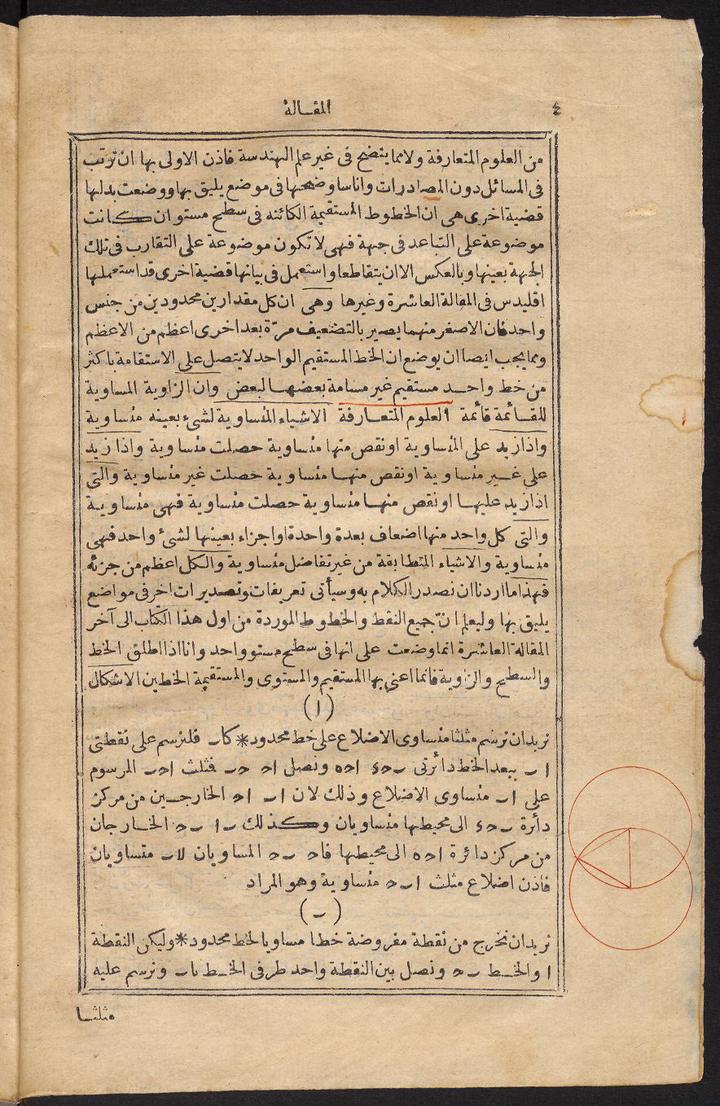 ٤
المقالة
من العلوم المتعارفة ولا مما يتضح فى غير علم الهندسة فاذن الاولى بها ان ترتب
فى المسائل دون المصادرات وانا ساوضحها فى موضع يليق بها ووضعت بدلها
قضية اخرى هى ان الخطوط المستقيمة الكائنه فى سطح مستو ان كانت
موضوعة على التباعد فى جهة فهى لا تكون موضوعة على التقارب فى تلك
الجهة بعينها وبالعكس الا ان يتقاطعا واستعمل فى بيانها قضية اخرى قد استعملها
اقليدس فى المقالة العاشرة وغيرها وهى ان كل مقدارين محدودين من جنس
واحد فان الاصغر منهما يصير بالتضعيف مرة بعد اخرى اعظم من الاعظم
ومما يجب ايضا ان يوضع ان الخط المستقيم الواحد لا يتصل على الاستقامة باكثر
من خط واحد مستقيم غير مسامة بعضهما لبعض وان الزاوية المساوية
للقائمة قائمة العلوم المتعارفة الاشياء المساوية لشئ بعينه متساوية
واذا زيد على المتساوية او نقص منها متساوية حصلت متساوية واذا زيد
على غير متساوية او نقص منها متساوية حصلت غير متساوية والتى
اذا زيد عليها او نقص منها متساوية حصلت متساوية فهى متساوية
والتى كل واحد منها اضعاف بعدة واحدة او اجزاء بعينها لشئ واحد فهى
متساوية والاشياء المتطابقة من غير تفاضل متساوية والكل اعظم من جزئه
فهذا ما اردنا ان نصدر الكلام به وسيأتى تعريفات وتصديرات اخر فى مواضع
يليق بها وليعلم انّ جميع النقط والخطوط الموردة من اول هذا الكتاب الى آخر
المقالة العاشرة انما وضعت على انها فى سطح مستو واحد وانا اذا اطلق الخط
والسطح والزاوية فانما اعنى بها المستقيم والمستوى والمستقيمة الخطين الاشكال
(ا)
نريد ان نرسم مثلثا متساوى الاضلاع على خط محدود * كاٮ فلنرسم على نقطتى
ا ٮ ببعد الخط دائرتى ٮ ح ء ا ح ه ونصل ا ح ح ٮ فمثلث ا ح ٮ المرسوم
على ا ٮ متساوى الاضلاع وذلك لان ا ٮ ا ح الخارجين من مركز
دائرة ٮ ح ء الى محيطها متساويان وكذلك ٮ ا ٮ ح الخارجان
من مركز دائرة ا ح ه الى محيطها فا ح ٮ ح المساويان لا ٮ متساويان
فاذن اضلاع مثلث ا ٮ ح متساوية وهو المراد
(ٮ)
نريد ان نخرج من نقطة مفروضة خطا مساويا لخط محدود * وليكن النقطة
ا والخط ٮ ح ونصل بين النقطة واحد طرفى الخط با ٮ ونرسم عليه
مثلثا